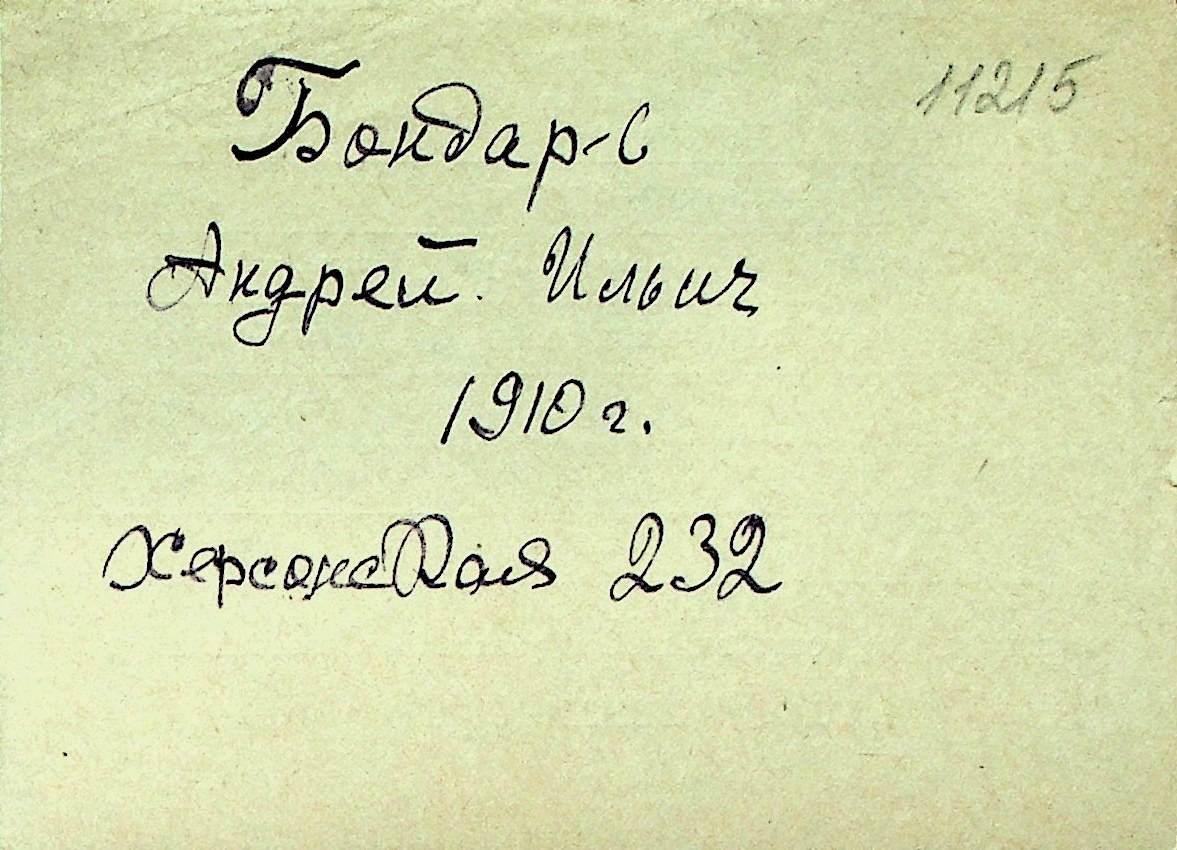 11215
Бондар-ь
Андрей Ильич
1910 г.
Херсонская 232